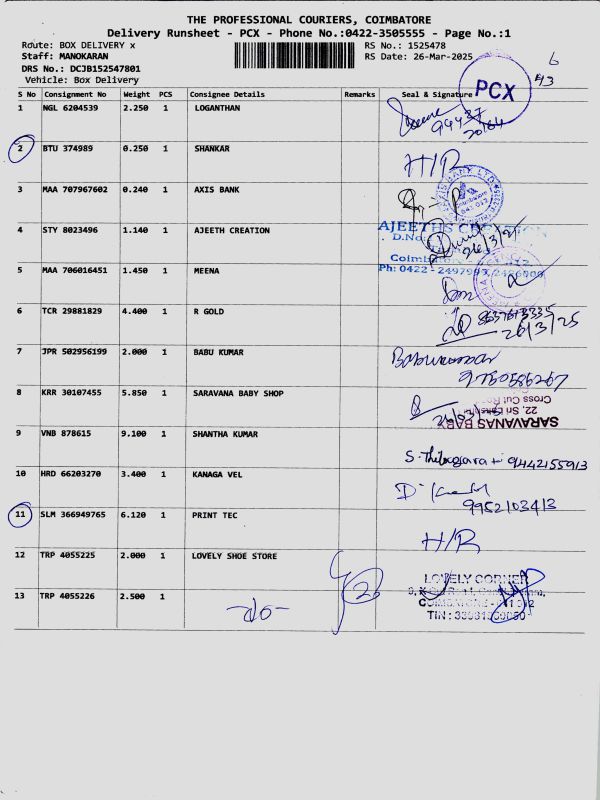 THE PROFESSIONAL COURIERS, COIMBATORE
Delivery Runsheet - PCX - Phone No.:0422-3505555 - Page No.:1
Route: BOX DELIVERY x
RS No.: 1525478
Staff: MANOKARAN
RS Date: 26-Mar-2025
DRS No.: DCJB152547801
Vehicle: Box Delivery
6
PCX
S No Consignment No Weight PCS Consignee Details Remarks Seal & Signature
1 NGL 6204539 2.250 1 LOGANTHAN
2 BTU 374989 0.250 1 SHANKAR H/R
3 MAA 707967602 0.240 1 AXIS BANK
4 STY 8023496 1.140 1 AJEETH CREATION
AJEETHS
D.No
26/3/25
Ph: 0422 -
5 MAA 706016451 1.450 1 MEENA
6 TCR 29881829 4.400 1 R GOLD
26/3/25
7 JPR 502956199 2.000 1 BABU KUMAR Babukumar
8 KRR 30107455 5.850 1 SARAVANA BABY SHOP
SARAVANAS BABY
22, Sri
Cross Cut
9 VNB 878615 9.100 1 SHANTHA KUMAR 9442155913
10 HRD 66203270 3.400 1 KANAGA VEL
9952103413
11 SLM 366949765 6.120 1 PRINT TEC H/R
12 TRP 4055225 2.000 1 LOVELY SHOE STORE
2
LOVELY CORNER
13 TRP 4055226 2.500 1 -do-
TIN :